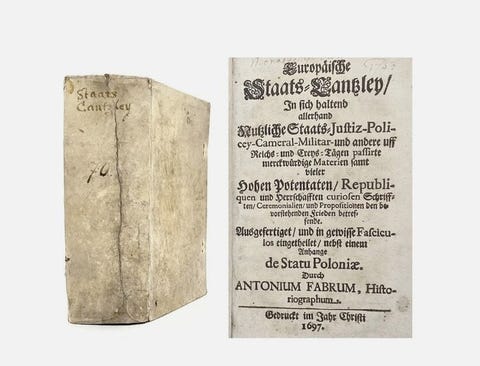 Staats
Cantzley
Europäische
Staats-Cantzley/
In sich haltend
allerhand
Nutzliche Staats-Justiz-Poli-
cey-Cameral-Militar-und andere uff
Reichs- und Creys-Tägen passirte
merckwürdige Materien samt
vieler
Hohen Potentaten/ Republi-
quen und Herrschafften curiosen Schriff-
ten/ Ceremonialien/ und Propositionen den be-
vorstehenden Frieden betref-
fende.
Ausgefertiget/ und in gewisse Fascicu-
los eingetheilet/ nebst einem
Anhange
de Statu Poloniæ.
Durch
ANTONIUM FABRUM, Histo-
riographum.
Gedruckt im Jahr Christi
1697.